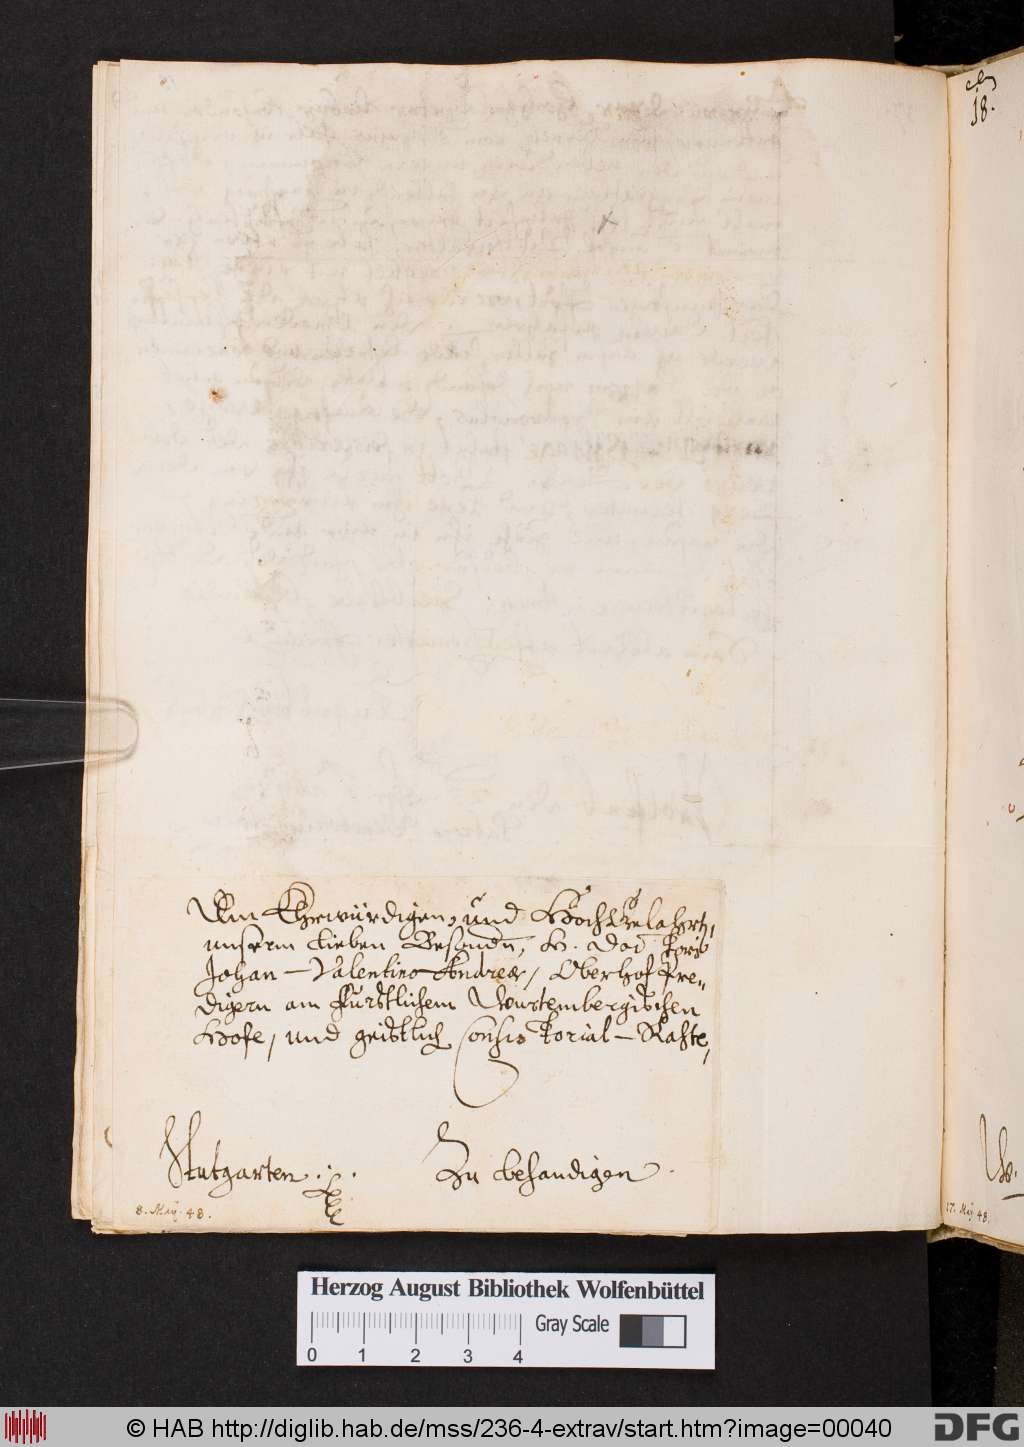 18.
Dem Ehrwürdigen, und HochGelahrt,
unserm Lieben Besondn, H. Doctori
Johan-Valentino Andreæ, Oberhof Pre-
digern am Fürstlichem Würtembergischen
Hofe, und geistlich Consistorial-Rahte,
Stutgarten.
Zu behandigen.
8. Maij. 48.
17. Maij 48.
Herzog August Bibliothek Wolfenbüttel
Gray Scale
0 1 2 3 4
© HAB http://diglib.hab.de/mss/236-4-extrav/start.htm?image=00040
DFG